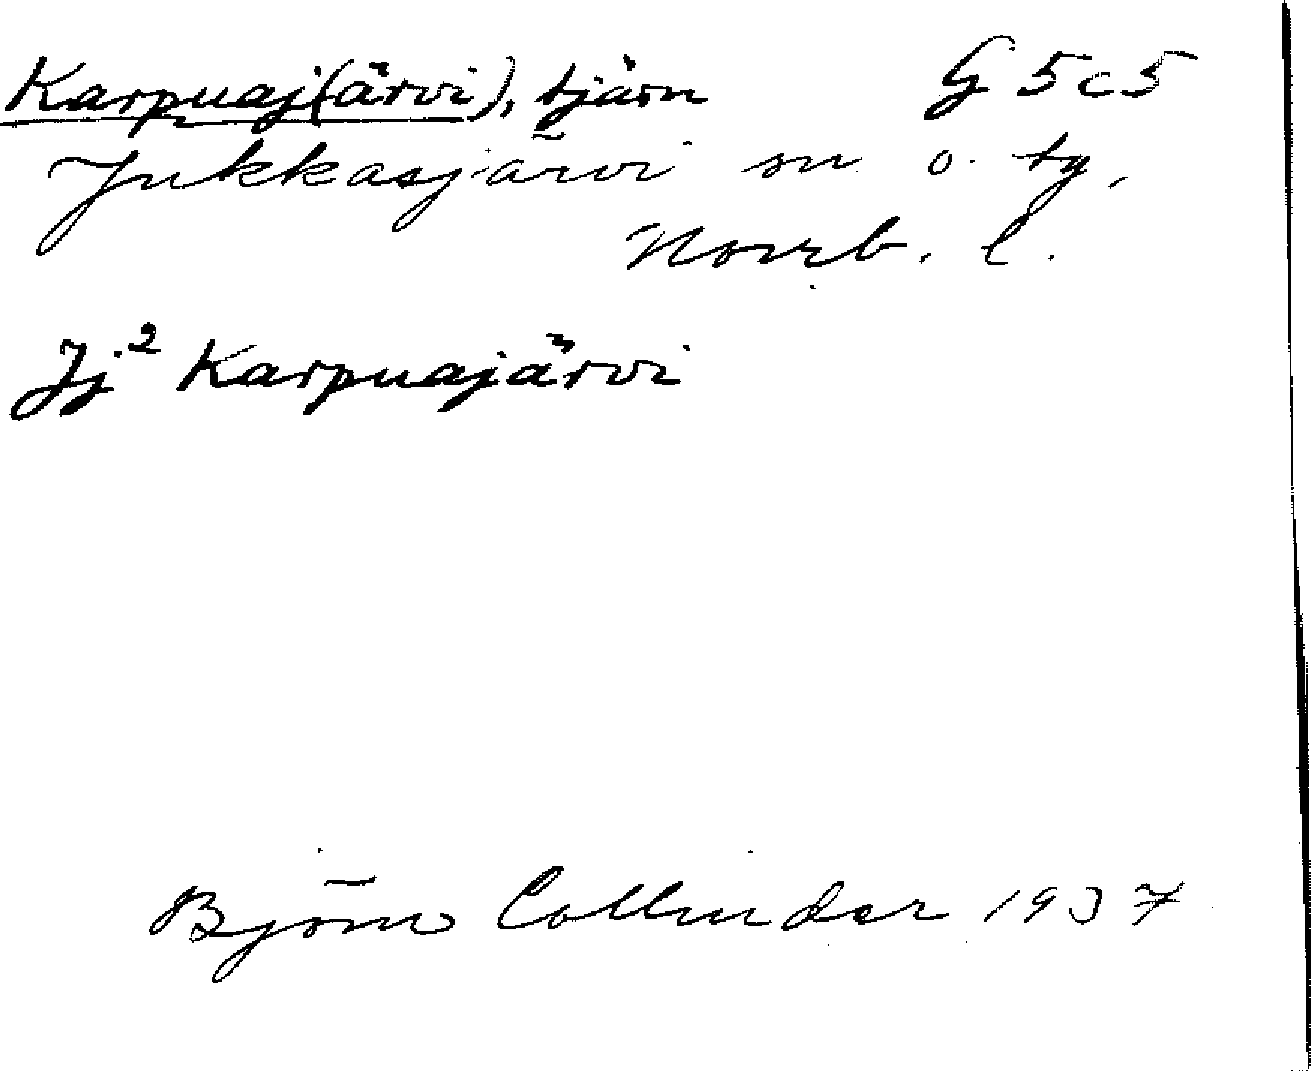 Karpuaj(ärvi), tjärn G 5 c 5
Jukkasjärvi sn o. tg,
Norrb. l.
Jj² Karpuajärvi
Björn Collinder 1937